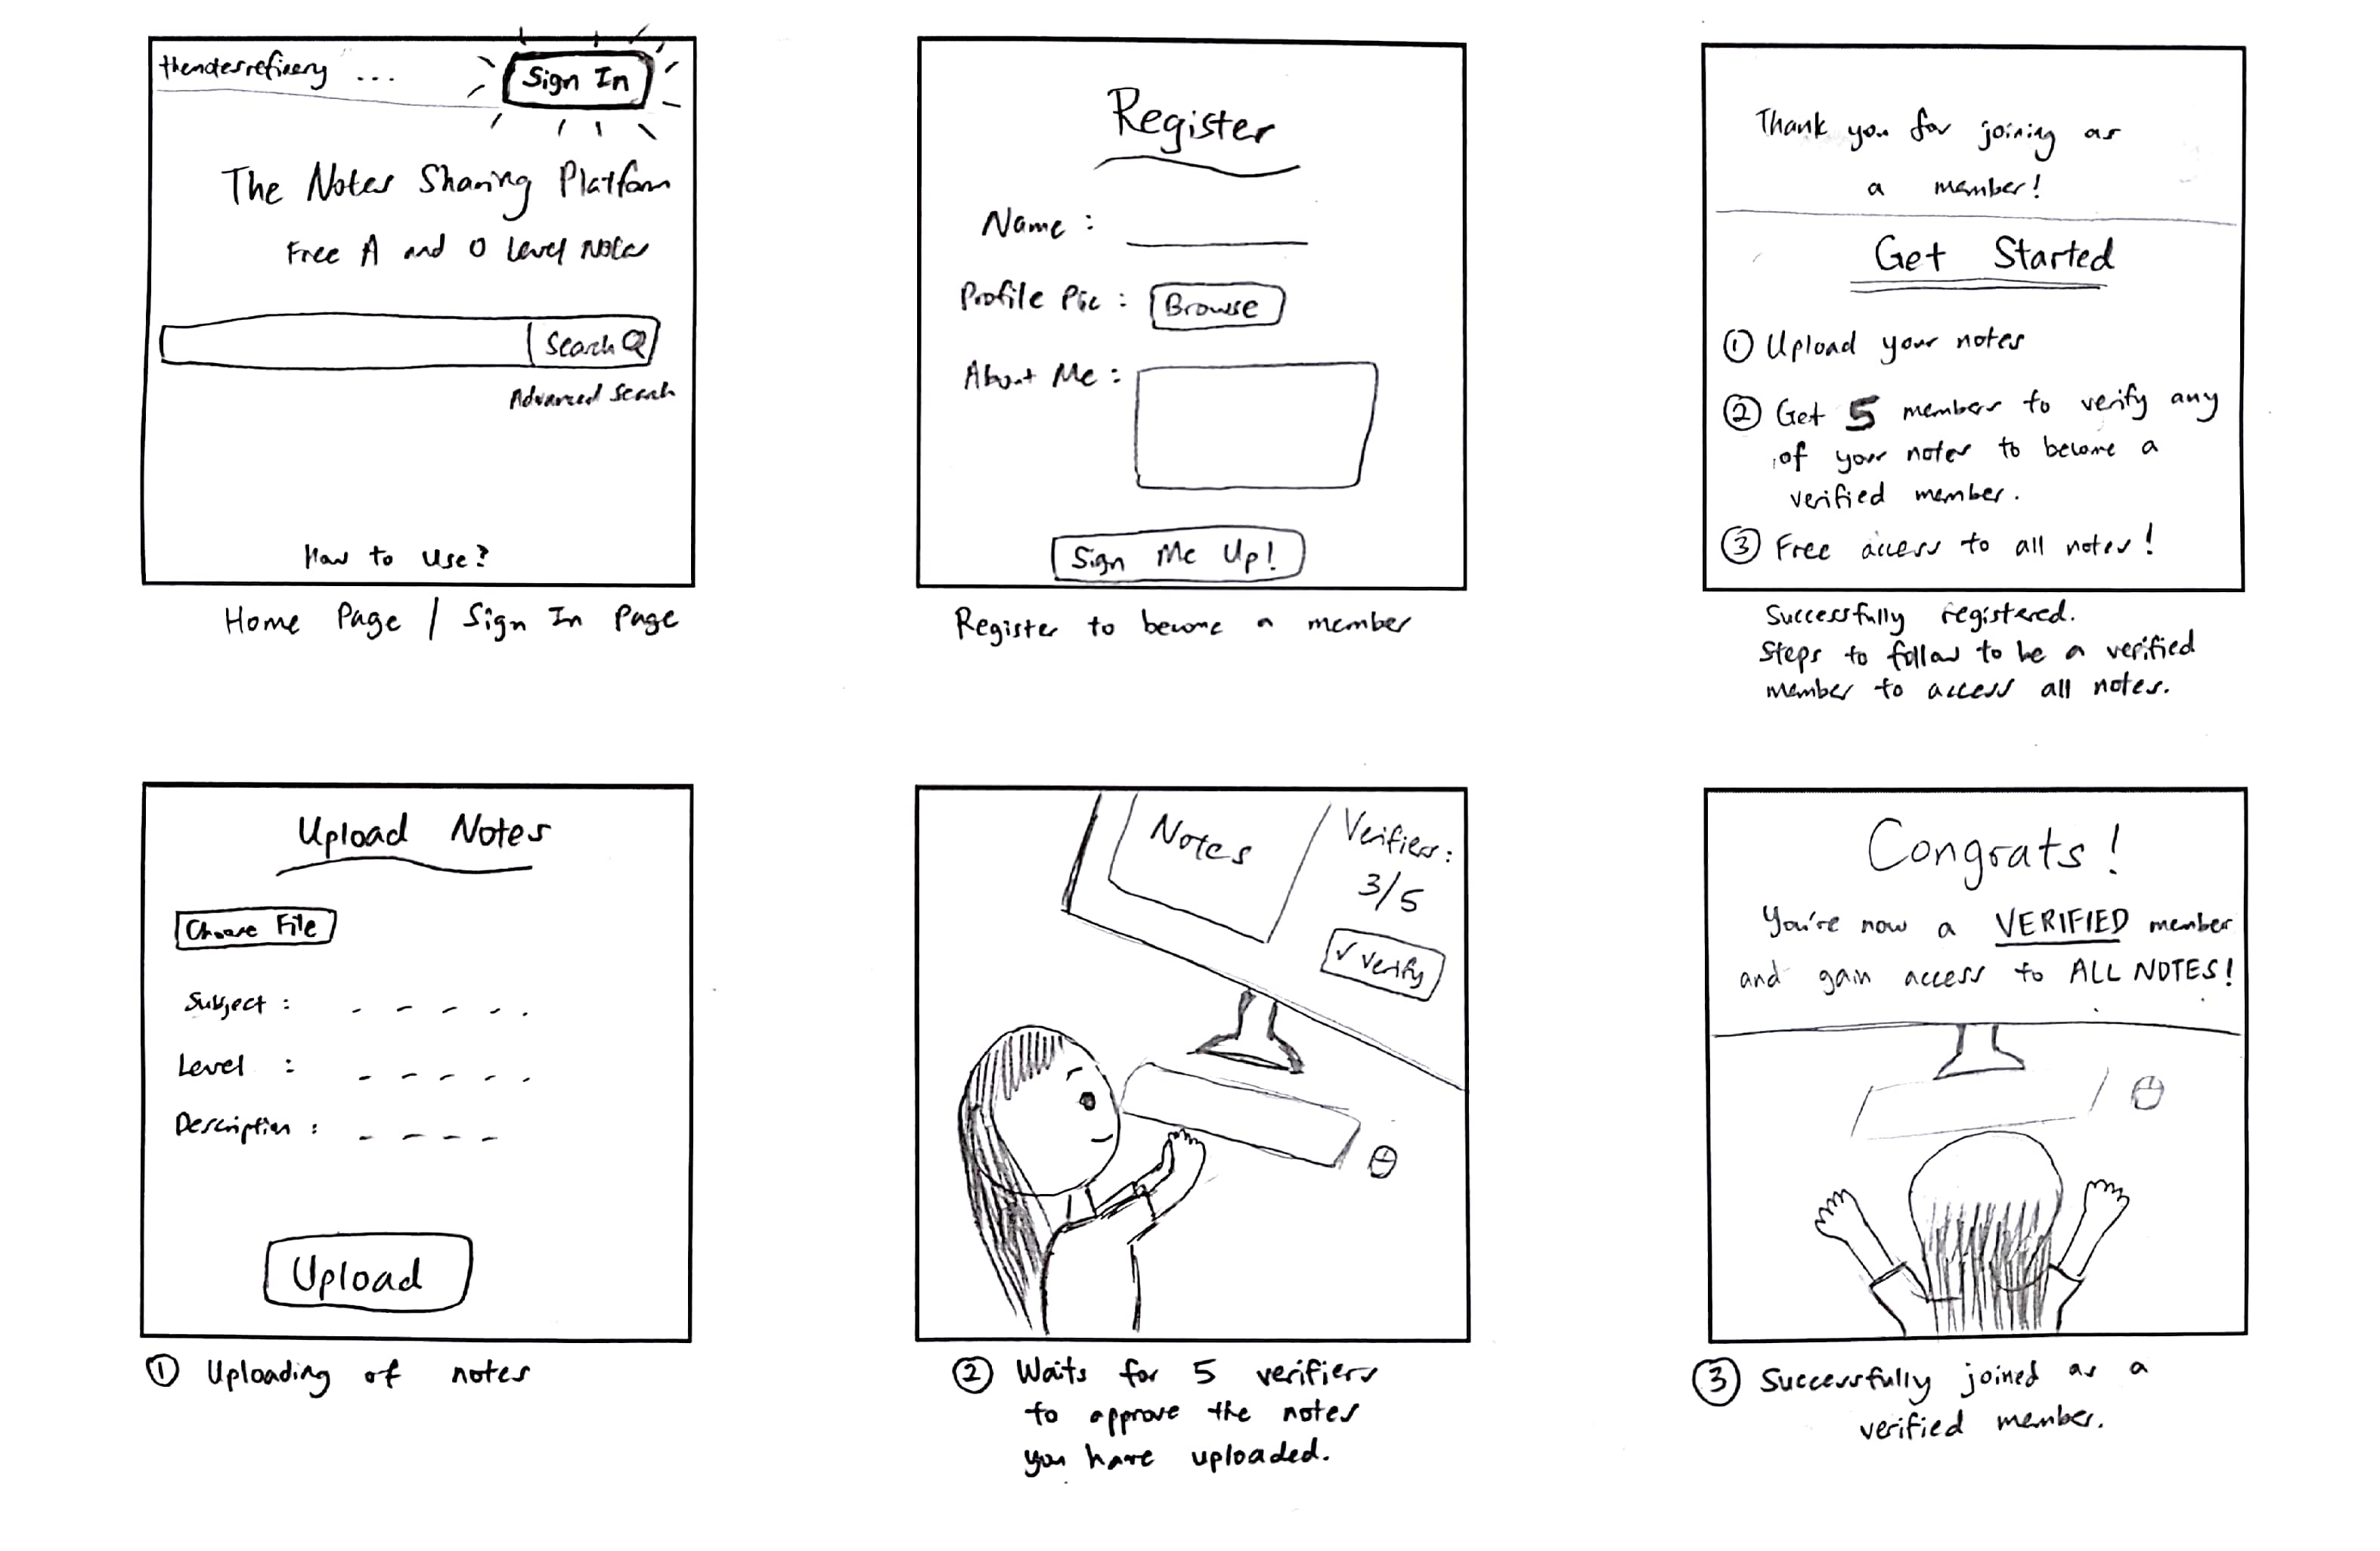 thenotesrefinery ...
Sign In
The Notes Sharing Platform
Free A and O Level Notes
Search
Advanced Search
How to Use?
Home Page / Sign In Page
Register
Name :
Profile Pic : Browse
About Me :
Sign Me Up!
Register to become a member
Thank you for joining as
a member!
Get Started
① Upload your notes
② Get 5 members to verify any
of your notes to become a
verified member.
③ Free access to all notes!
Successfully registered.
Steps to follow to be a verified
member to access all notes.
Upload Notes
Choose File
Subject :
Level :
Description :
Upload
① Uploading of notes
Notes
Verifiers:
3/5
✓ Verify
② Waits for 5 verifiers
to approve the notes
you have uploaded.
Congrats!
You're now a VERIFIED member
and gain access to ALL NOTES!
③ Successfully joined as a
verified member.